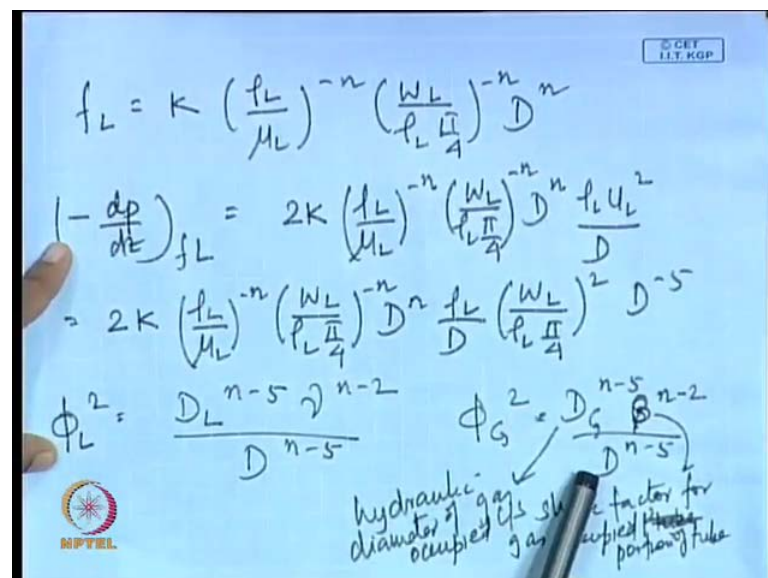 © CET
I.I.T. KGP
f_L = K (ρ_L / μ_L)^{-n} (W_L / ρ_L π/4)^{-n} D^n
(- dp/dz)_{fL} = 2K (ρ_L / μ_L)^{-n} (W_L / ρ_L π/4)^{-n} D^n ρ_L u_L^2 / D
= 2K (ρ_L / μ_L)^{-n} (W_L / ρ_L π/4)^{-n} D^n ρ_L / D (W_L / ρ_L π/4)^2 D^{-5}
ϕ_L^2 = D_L^{n-5} ν^{n-2} / D^{n-5} ϕ_G^2 = D_G^{n-5} β^{n-2} / D^{n-5}
hydraulic
diameter of gas
occupied c/s
factor for
gas occupied
portion of tube
NPTEL